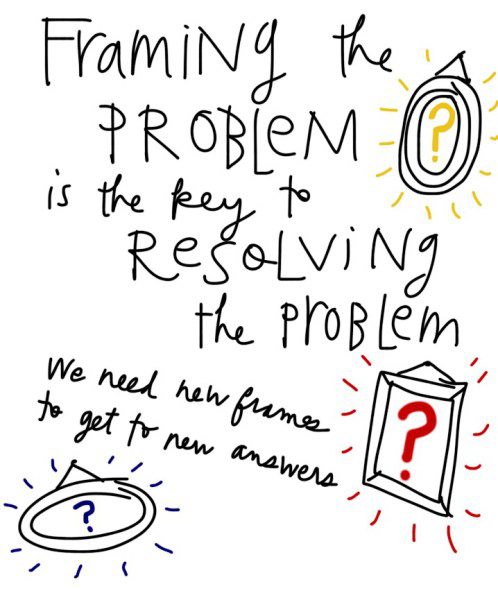 FramiNg the
PROBLeM
?
is the key to
ReSoLViNg
the PROBLeM
We need new frames
to get to new answers
?
?